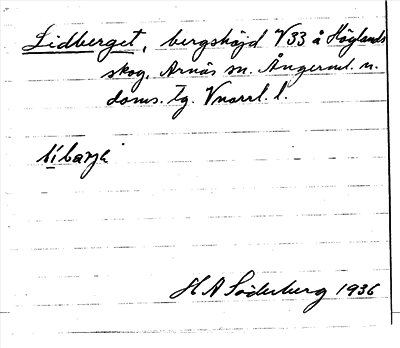 Lidberget, bergshöjd V33 å Höglands
skog, Arnäs sn. Ångerml. n.
doms. tg. Vnorrl. l.
lìbarjɛ
H A Söderberg 1936